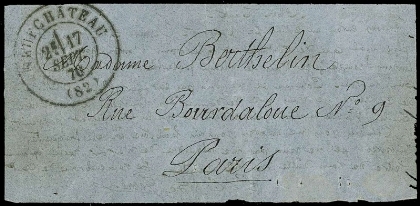 NEUFCHÂTEAU
2E 17
SEPT.
70
(82)
Madame Berthelin
Rue Bourdaloue No. 9
Paris